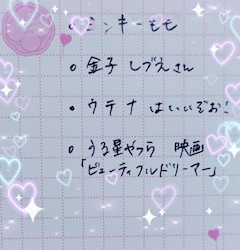 • ミンキーモモ
• 金子 しづえさん
• ウテナ はいいぞお!
• うる星やつら 映画
「ビューティフルドリーマー」